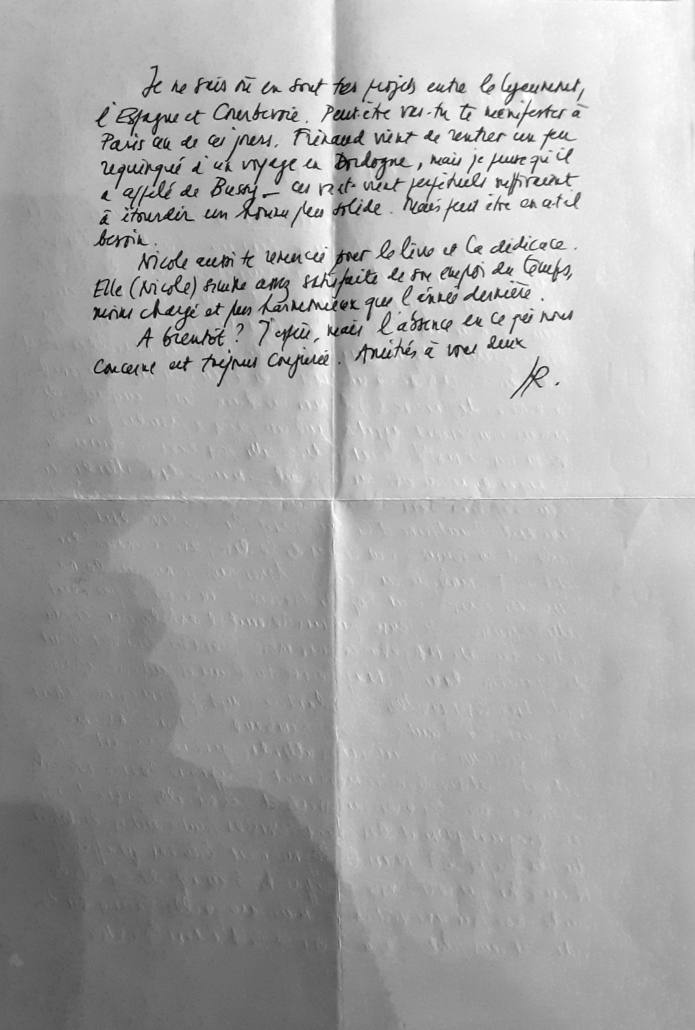 Je ne sais où en sont tes projets entre le
l'Espagne et Courbevoie. Peut-être vas-tu te manifester à
Paris un de ces jours. Frénaud vient de rentrer un peu
requinqué d'un voyage en Dordogne, mais je pense qu'il
a de Bussy — ces va-et-vient perpétuels suffiraient
à étourdir un homme plus solide. Mais peut être en a-t-il
besoin.
Nicole aussi te remercie pour le livre et la dédicace.
Elle (Nicole) semble assez satisfaite de son emploi du temps,
moins chargé et plus harmonieux que l'année dernière.
A bientôt ? J'espère, mais l'absence en ce qui nous
concerne est toujours conjurée. Amitiés à vous deux